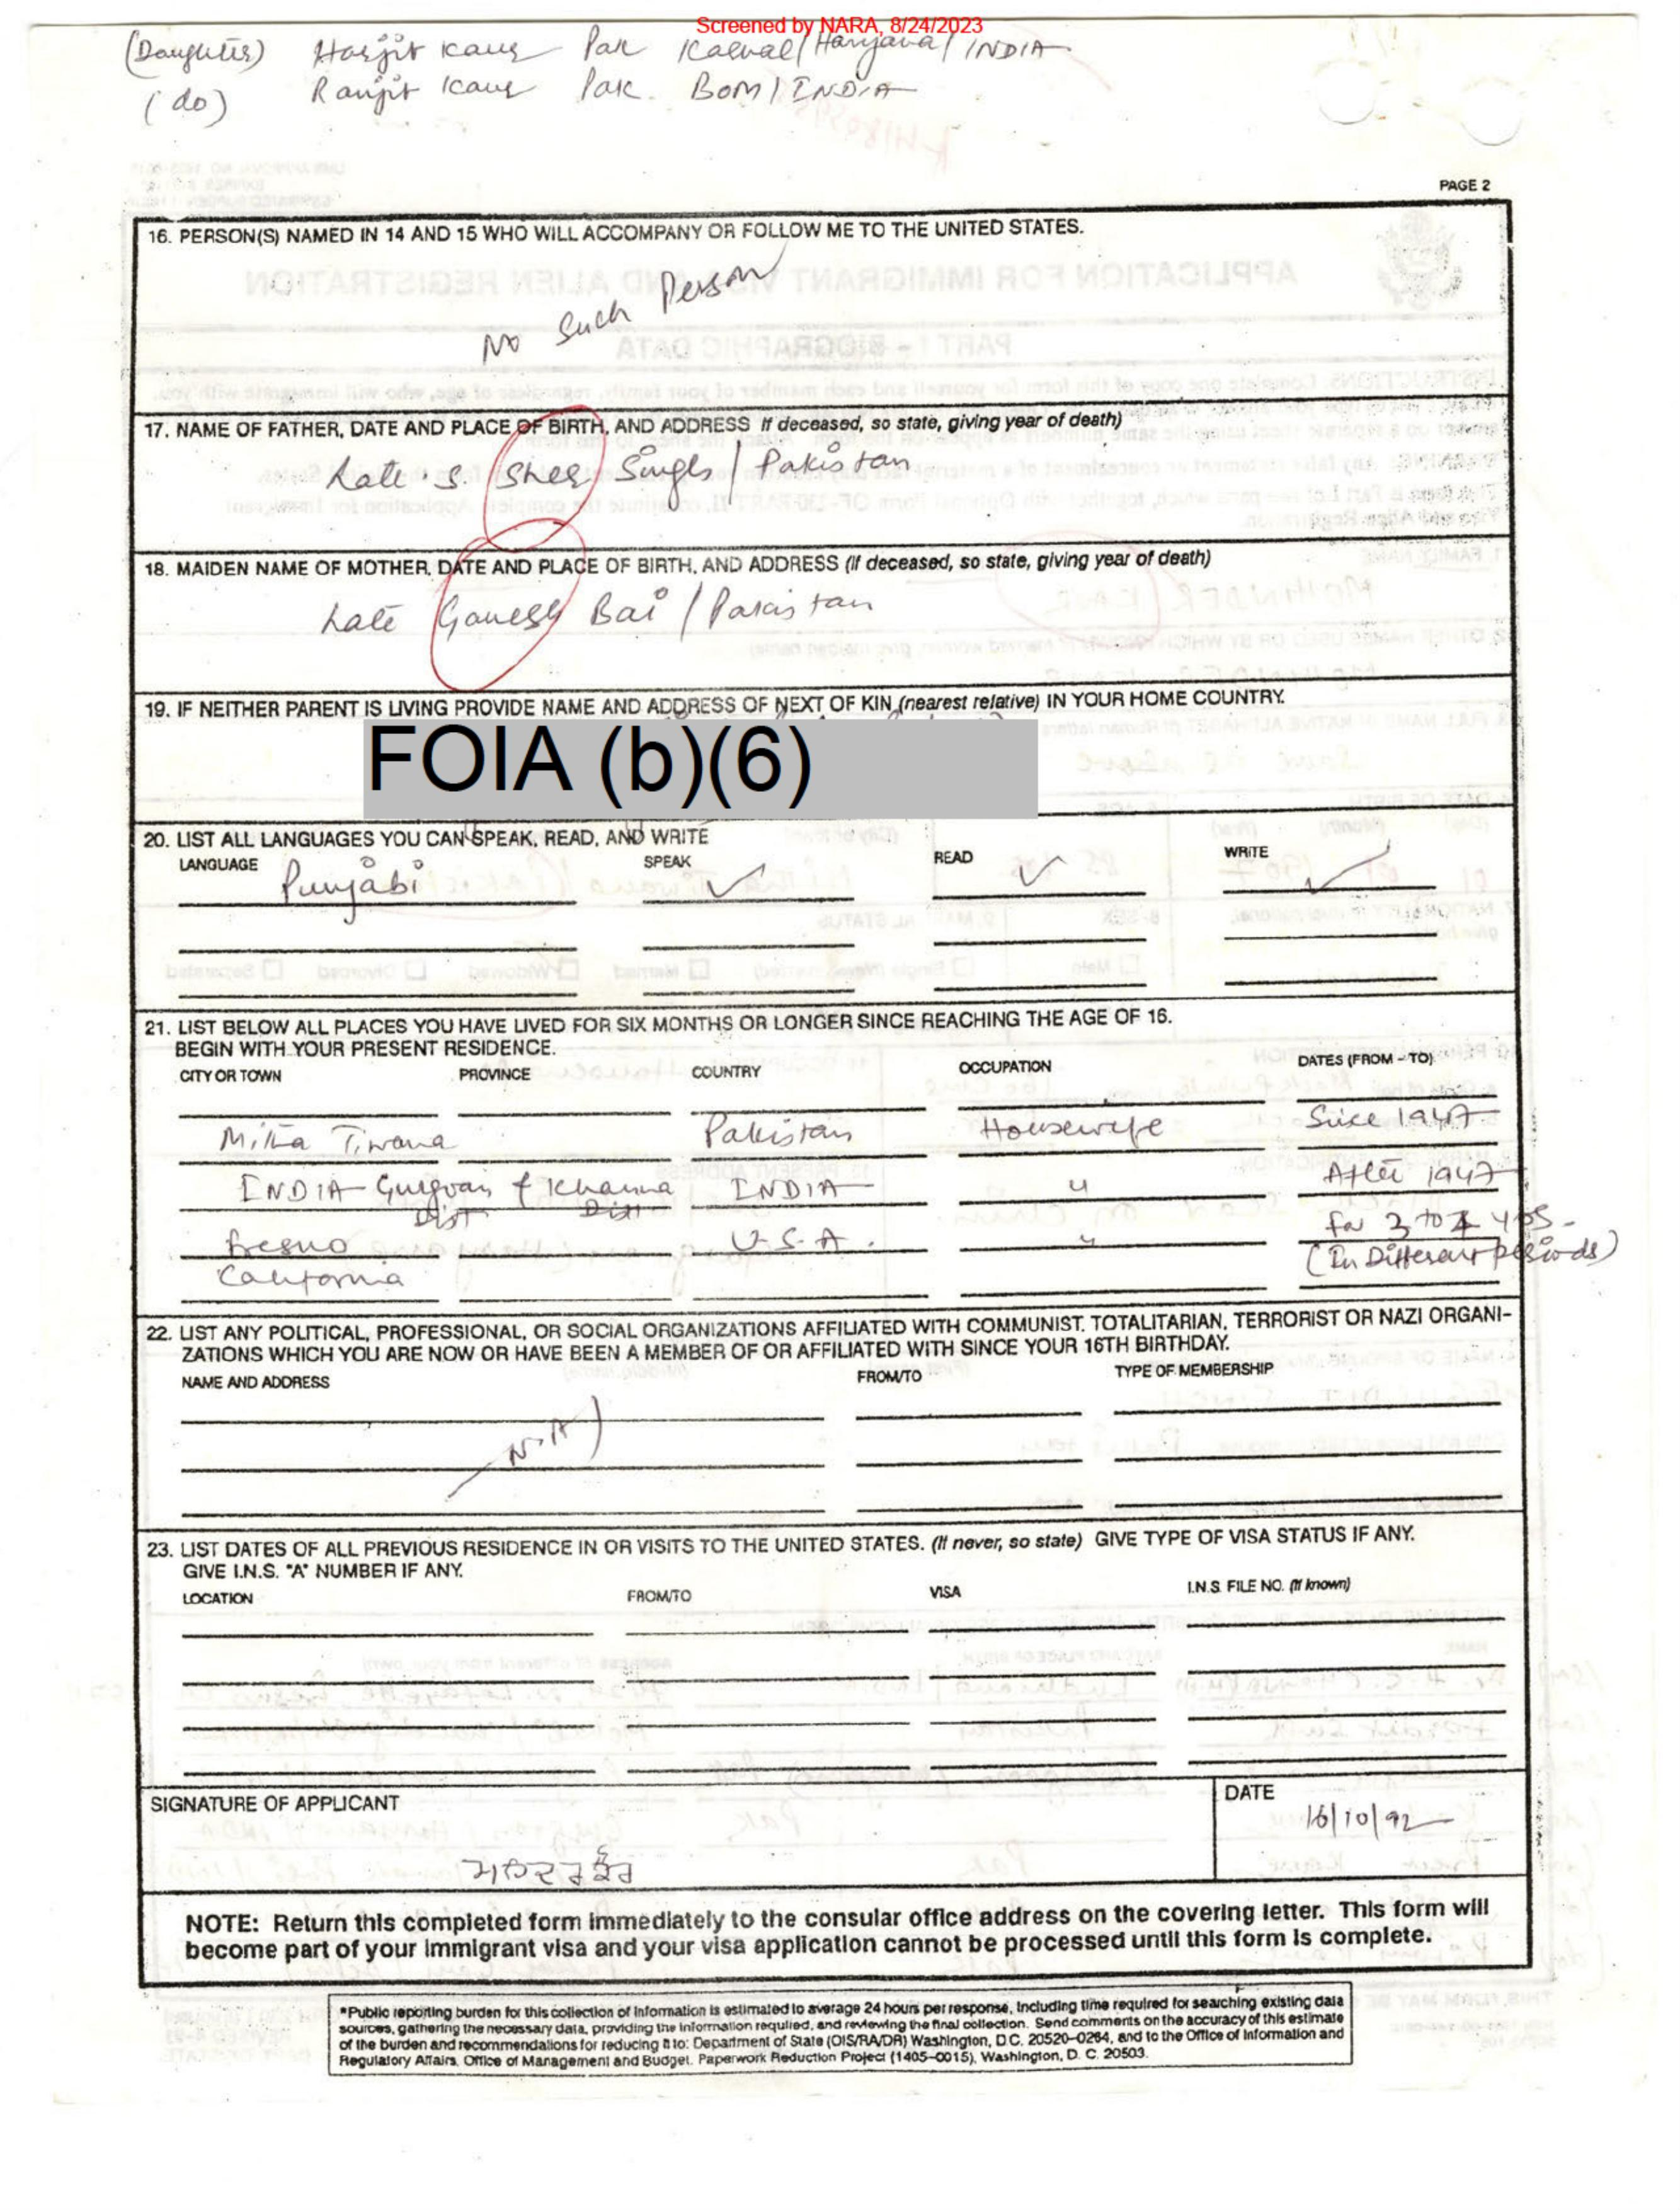 Screened by NARA, 8/24/2023
(Daughter) Harjit Kaur Pak Karnal/Haryana/INDIA
(do) Ranjit Kaur Pak. BOM/INDIA
PAGE 2
16. PERSON(S) NAMED IN 14 AND 15 WHO WILL ACCOMPANY OR FOLLOW ME TO THE UNITED STATES.
No Such Person
17. NAME OF FATHER, DATE AND PLACE OF BIRTH, AND ADDRESS If deceased, so state, giving year of death)
Late. S. Sher Singh / Pakistan
18. MAIDEN NAME OF MOTHER, DATE AND PLACE OF BIRTH, AND ADDRESS (If deceased, so state, giving year of death)
Late Ganesh Bai / Pakistan
19. IF NEITHER PARENT IS LIVING PROVIDE NAME AND ADDRESS OF NEXT OF KIN (nearest relative) IN YOUR HOME COUNTRY.
FOIA (b)(6)
20. LIST ALL LANGUAGES YOU CAN SPEAK, READ, AND WRITE
LANGUAGE SPEAK READ WRITE
Punjabi ✓ ✓ ✓
21. LIST BELOW ALL PLACES YOU HAVE LIVED FOR SIX MONTHS OR LONGER SINCE REACHING THE AGE OF 16.
BEGIN WITH YOUR PRESENT RESIDENCE.
CITY OR TOWN PROVINCE COUNTRY OCCUPATION DATES (FROM - TO)
Mitha Tiwana Pakistan Housewife Since 1947
INDIA- Gurgoan & Khanna INDIA " After 1947
Dist Dist
Fresno U.S.A. " for 3 to 4 yrs.
California (In Different periods)
22. LIST ANY POLITICAL, PROFESSIONAL, OR SOCIAL ORGANIZATIONS AFFILIATED WITH COMMUNIST, TOTALITARIAN, TERRORIST OR NAZI ORGANI-
ZATIONS WHICH YOU ARE NOW OR HAVE BEEN A MEMBER OF OR AFFILIATED WITH SINCE YOUR 16TH BIRTHDAY.
NAME AND ADDRESS FROM/TO TYPE OF MEMBERSHIP
N.A
23. LIST DATES OF ALL PREVIOUS RESIDENCE IN OR VISITS TO THE UNITED STATES. (If never, so state) GIVE TYPE OF VISA STATUS IF ANY.
GIVE I.N.S. "A" NUMBER IF ANY.
LOCATION FROM/TO VISA I.N.S. FILE NO. (If known)
SIGNATURE OF APPLICANT DATE
16/10/92
NOTE: Return this completed form immediately to the consular office address on the covering letter. This form will
become part of your immigrant visa and your visa application cannot be processed until this form is complete.
*Public reporting burden for this collection of information is estimated to average 24 hours per response, including time required for searching existing data
sources, gathering the necessary data, providing the information required, and reviewing the final collection. Send comments on the accuracy of this estimate
of the burden and recommendations for reducing it to: Department of State (OIS/RA/DR) Washington, D.C. 20520-0264, and to the Office of Information and
Regulatory Affairs, Office of Management and Budget, Paperwork Reduction Project (1405-0015), Washington, D. C. 20503.